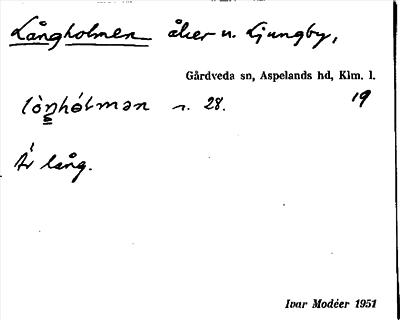 Långholmen åker u. Ljungby,
Gårdveda sn, Aspelands hd, Klm. l.
lòŋhólmən n. 28. 19
Är lång.
Ivar Modéer 1951